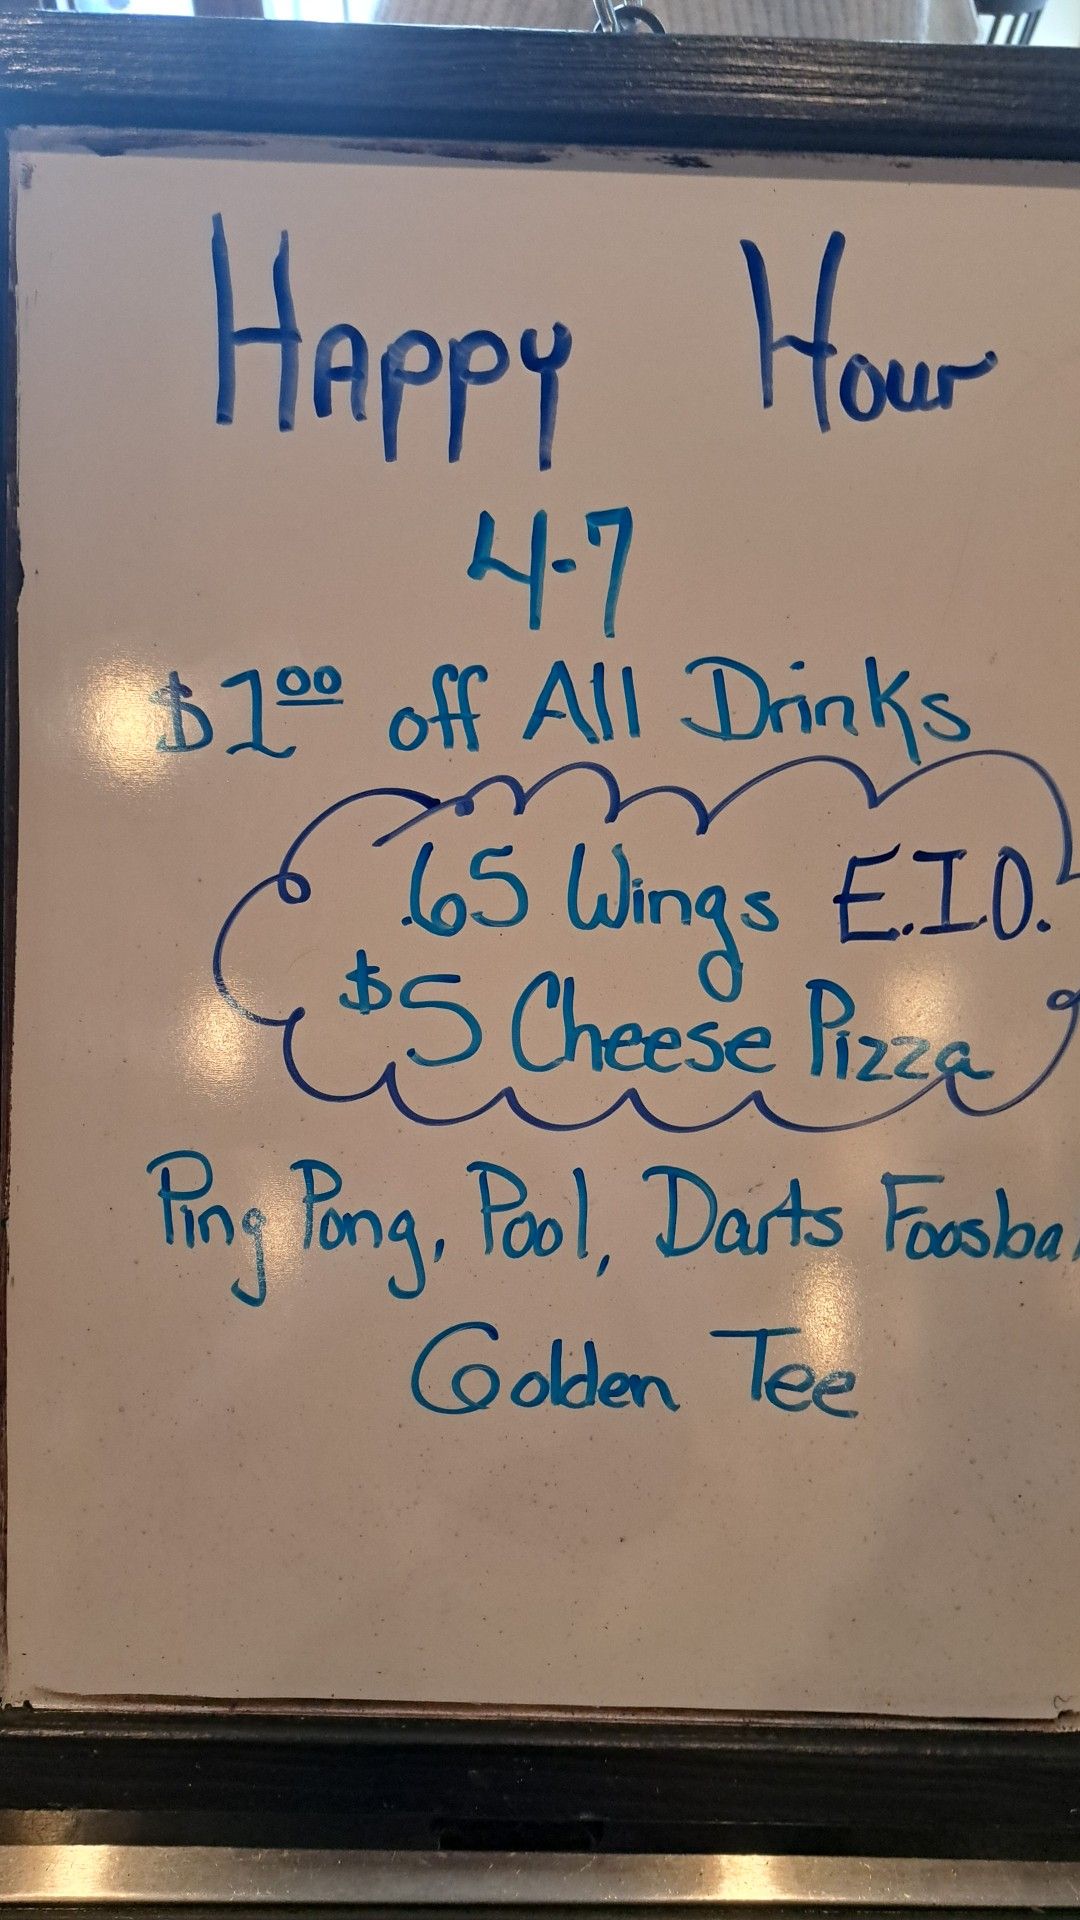 Happy Hour
4-7
$1.00 off All Drinks
.65 Wings E.I.O.
$5 Cheese Pizza
Ping Pong, Pool, Darts Foosba
Golden Tee